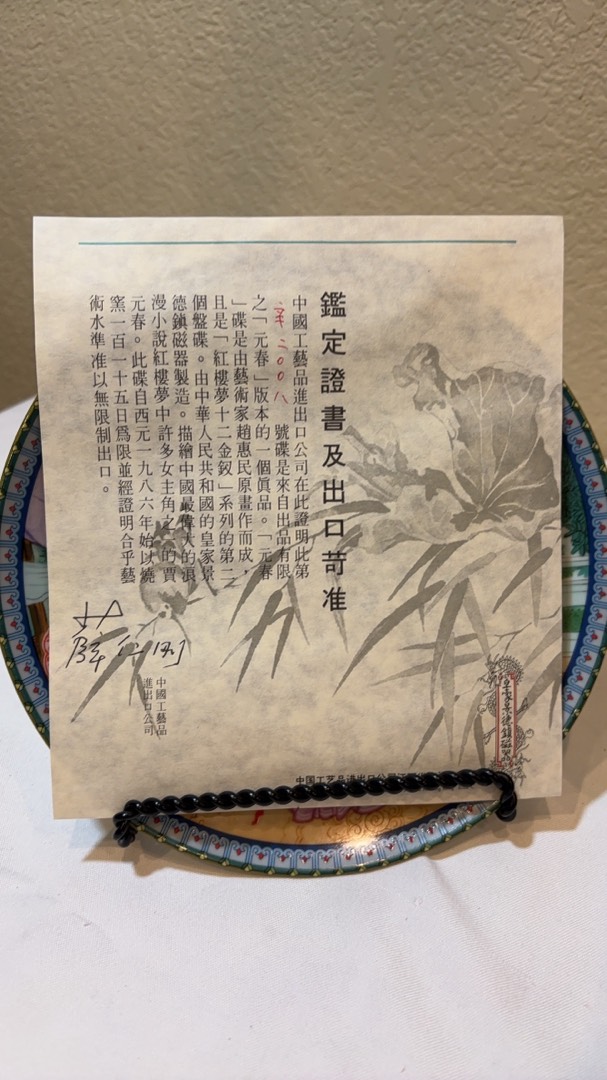 鑑定證書及出口苛准
中國工藝品進出口公司在此證明此第
二00八 號碟是來自出品有限
之「元春」版本的一個眞品。「元春
」碟是由藝術家趙惠民原畫作而成，
且是「紅樓夢十二金釵」系列的第二
個盤碟。由中華人民共和國的皇家景
德鎮磁器製造。描繪中國最偉大的浪
漫小說紅樓夢中許多女主角之一的賈
元春。此碟自西元一九八六年始以燒
窯一百一十五日爲限並經證明合乎藝
術水準准以無限制出口。
中國工藝品
進出口公司
皇家景德鎮磁器
中国工艺品进出口公司